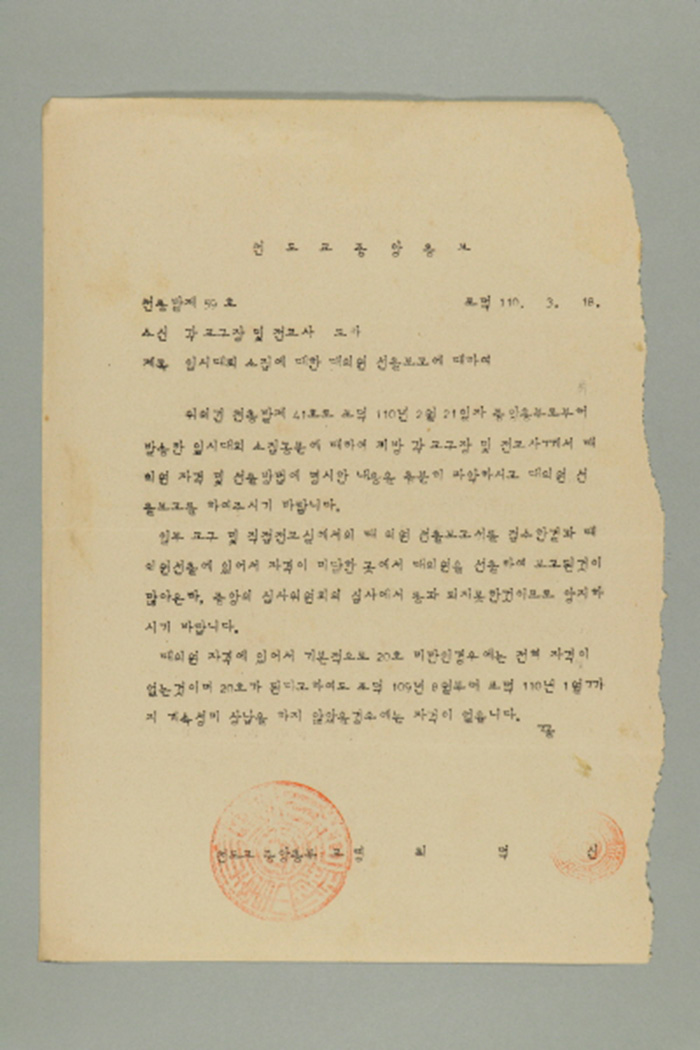 천 도 교 중 앙 총 부
천총발제 59 호 포덕 110. 3. 18.
수신 각 교구장 및 전교사 귀하
제목 임시대회 소집에 대한 대의원 선출보고에 대하여
위의건 천총발제 41호로 포덕 110년 2월 21일자 중앙총부로부터
발송한 임시대회 소집공문에 대하여 지방 각 교구장 및 전교사께서 대
의원 자격 및 선출방법에 명시한 내용을 충분히 파악하시고 대의원 선
출보고를 하여주시기 바랍니다.
일부 교구 및 직접전교실에서의 대의원 선출보고서를 접수한결과 대
의원선출에 있어서 자격이 미달한 곳에서 대의원을 선출하여 보고된것이
많아온바, 중앙의 심사위원회의 심사에서 통과 되지못한것이므로 양지하
시기 바랍니다.
대의원 자격에 있어서 기본적으로 20호 미만인경우에는 전혀 자격이
없는것이며 20호가 된다고하여도 포덕 109년 8월부터 포덕 110년 1월까
지 계속성미 상납을 하지 않았을경우에는 자격이 없읍니다.
끝
천도교 중앙총부 교령 최 덕 신